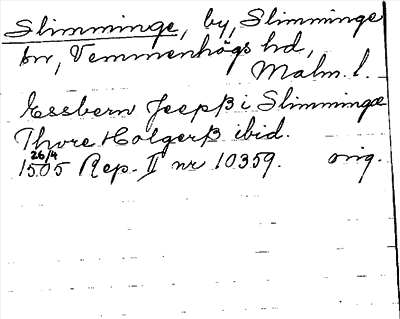 Slimminge, by, Slimminge
sn, Vemmenhögs hd,
Malm. l.
Essbern Jeepß i Slimminge
Thore Holgerß ibid.
26/4
1505 Rep. II nr 10359. orig.